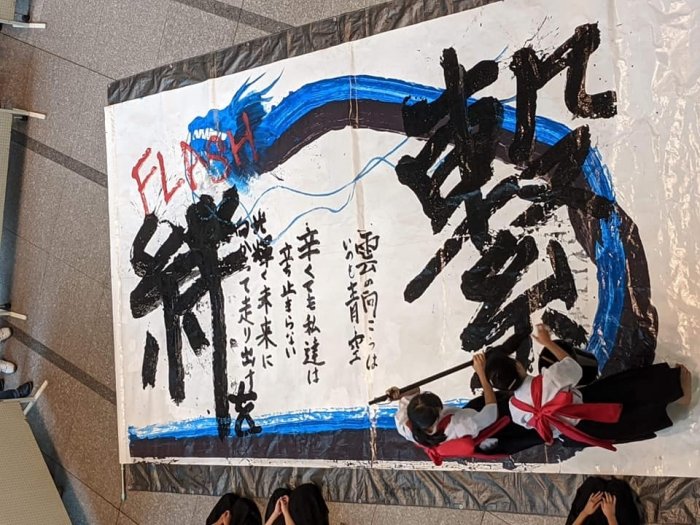 繋
雲の向こうは
いつも青空
辛くても私達は
立ち止まらない
光輝く未来に
向かって走り出
絆
FLASH